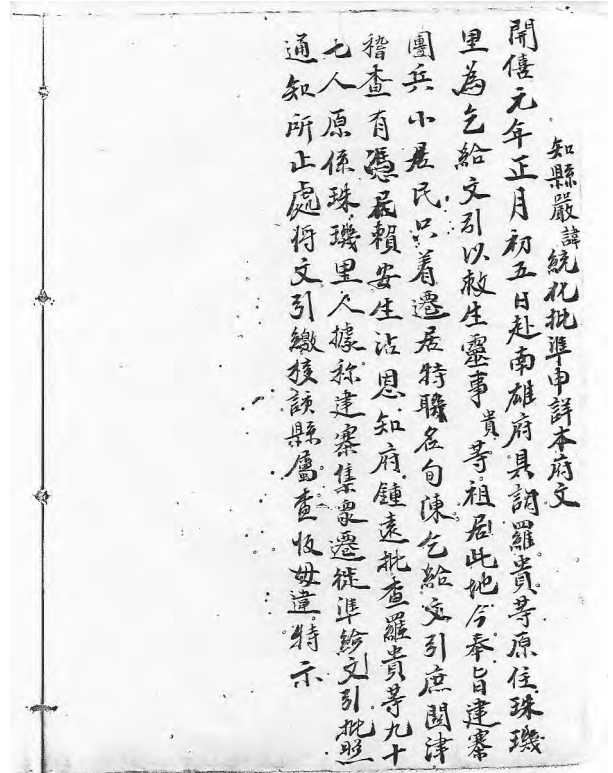 知縣嚴諱統化批準申詳本府文
開僖元年正月初五日赴南雄府具詞羅貴等原住珠璣
里為乞給文引以救生靈事貴等祖居此地今奉旨建寨
團兵小居民只着遷居特職名旬陳乞給文引庶關津
稽查有憑居賴安生沾恩知府鍾遠批查羅貴等九十
七人原係珠璣里人據称建寨集衆遷徙準給文引批照
通知所止處將文引繳該縣屬查收毋違特示